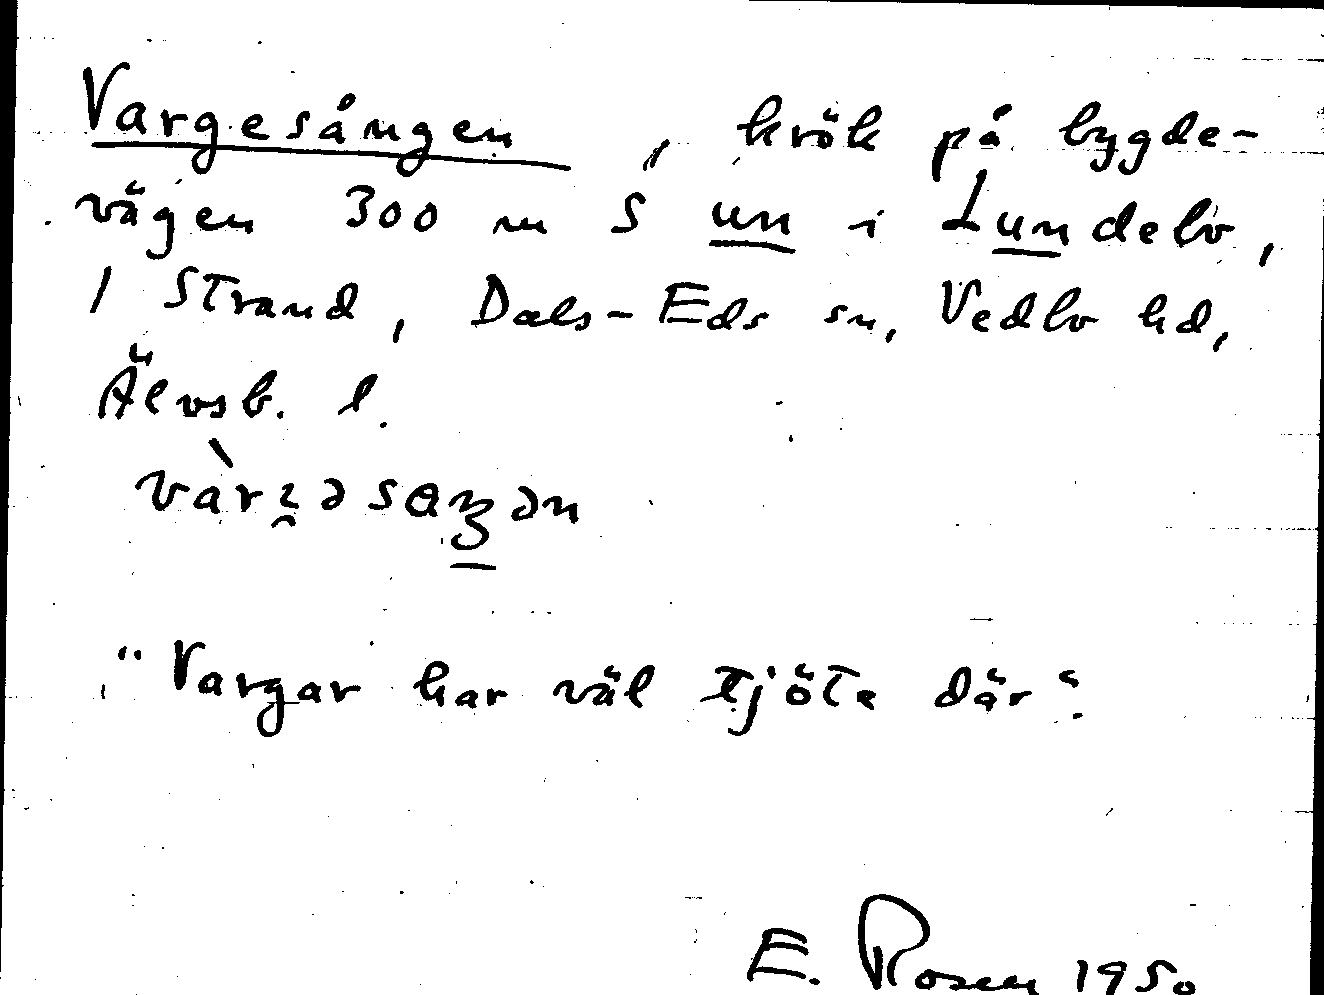 Vargesången, krök på bygde-
vägen 300 m S un i Lundebo,
1 Strand, Dals-Eds sn, Vedbo hd,
Älvsb. l.
"Vargar har väl tjöte där".
E. Rosen 1950